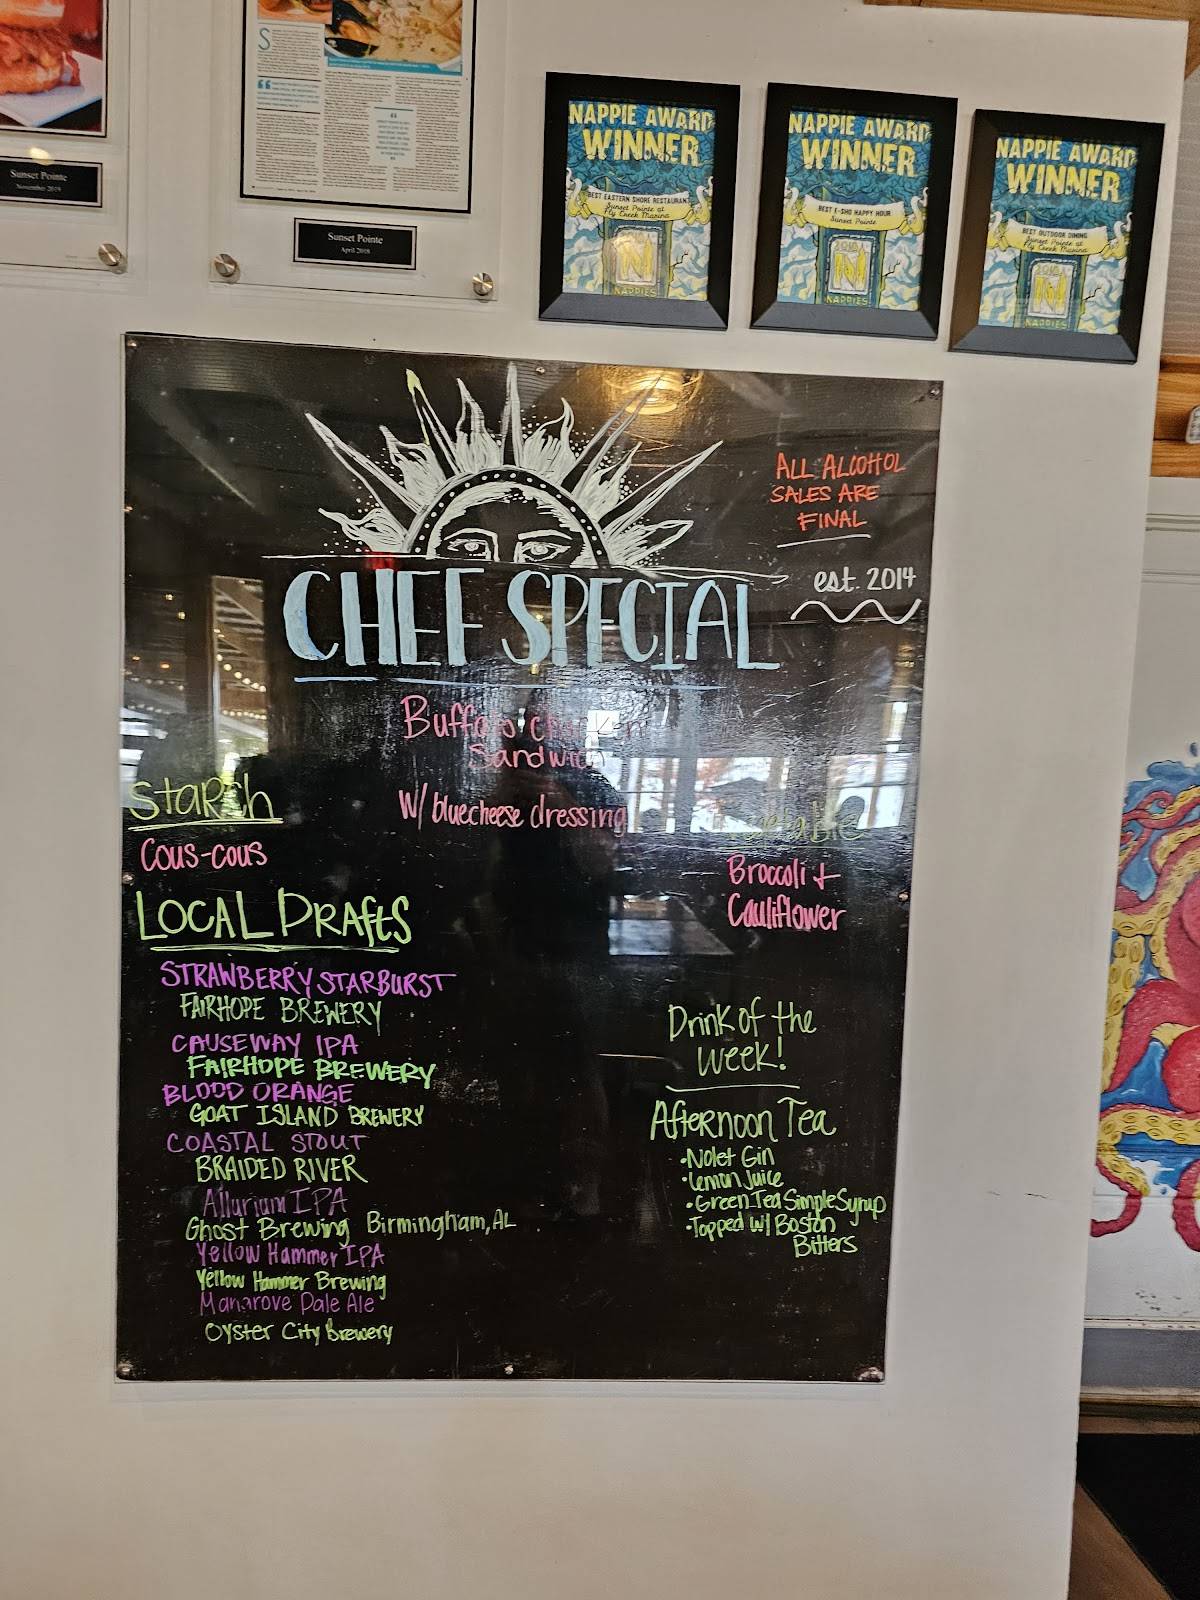 Sunset Pointe
November 2019
Sunset Pointe
April 2019
NAPPIE AWARD
WINNER
BEST EASTERN SHORE RESTAURANT
Sunset Pointe at
Fly Creek Marina
NAPPIES
NAPPIE AWARD
WINNER
BEST E-SHO HAPPY HOUR
Sunset Pointe
NAPPIES
NAPPIE AWARD
WINNER
BEST OUTDOOR DINING
Sunset Pointe at
Fly Creek Marina
NAPPIES
ALL ALCOHOL
SALES ARE
FINAL
est. 2014
CHEF SPECIAL
Buffalo chicken
Sandwich
W/ bluecheese dressing
Starch
Cous-cous
Vegetable
Broccoli +
Cauliflower
LOCAL DRAftS
STRAWBERRY STARBURST
FAIRHOPE BREWERY
CAUSEWAY IPA
FAIRHOPE BREWERY
BLOOD ORANGE
GOAT ISLAND BREWERY
COASTAL STOUT
BRAIDED RIVER
Allurium IPA
Ghost Brewing Birmingham, AL
Yellow Hammer IPA
Yellow Hammer Brewing
Mangrove Pale Ale
Oyster City Brewery
Drink of the
week!
Afternoon Tea
•Nolet Gin
•Lemon Juice
•Green Tea Simple Syrup
•Topped w/ Boston
Bitters